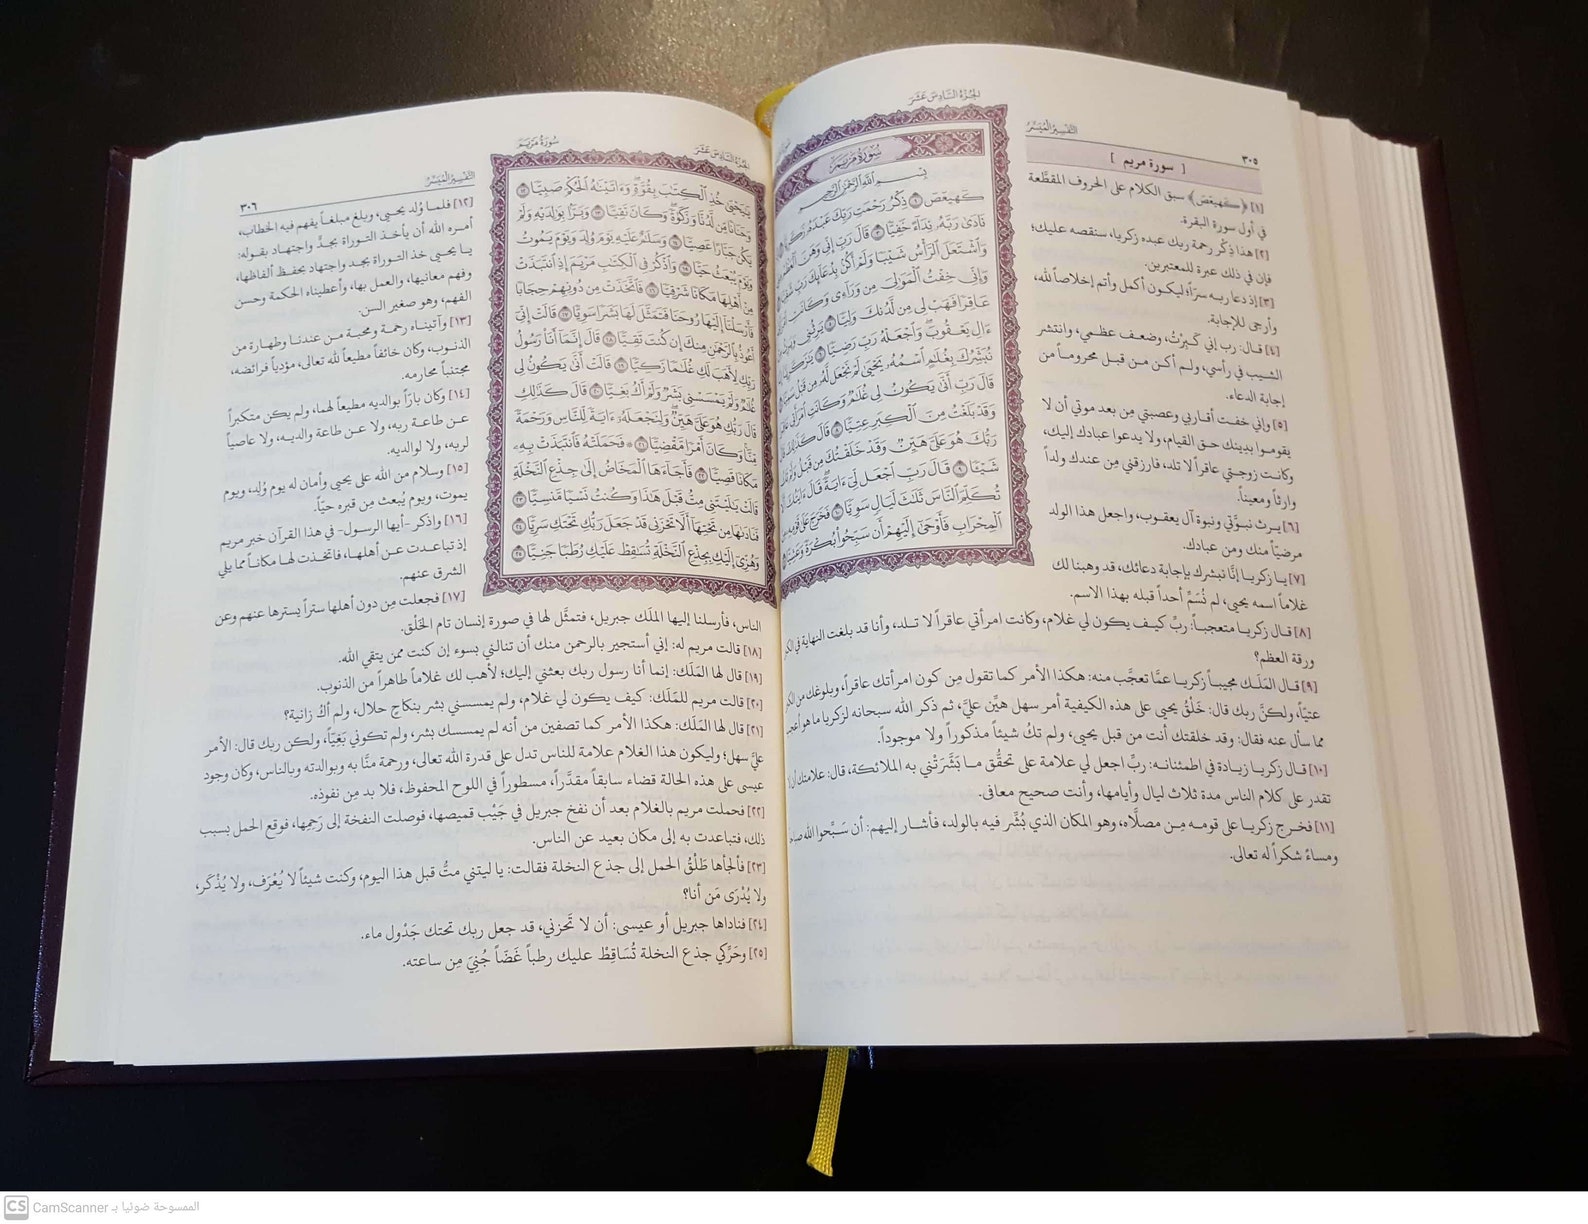 الجزء السادس عشر
التفسير الميسر
٣٠٥
[ سورة مريم ]
سُورَةُ مَرْيَمَ
بِسْمِ اللَّهِ الرَّحْمَٰنِ الرَّحِيمِ
كهيعص ① ذِكْرُ رَحْمَتِ رَبِّكَ عَبْدَهُ زَكَرِيَّا ②
نَادَىٰ رَبَّهُ نِدَاءً خَفِيًّا ③ قَالَ رَبِّ إِنِّي وَهَنَ الْعَظْمُ
وَاشْتَعَلَ الرَّأْسُ شَيْبًا وَلَمْ أَكُن بِدُعَائِكَ رَبِّ
وَإِنِّي خِفْتُ الْمَوَالِيَ مِن وَرَاءِي وَكَانَتِ
عَاقِرًا فَهَبْ لِي مِن لَّدُنكَ وَلِيًّا ⑤ يَرِثُنِي
ءَالِ يَعْقُوبَ وَاجْعَلْهُ رَبِّ رَضِيًّا ⑥
نُبَشِّرُكَ بِغُلَامٍ اسْمُهُ يَحْيَىٰ لَمْ نَجْعَل لَّهُ مِن قَبْلُ
قَالَ رَبِّ أَنَّىٰ يَكُونُ لِي غُلَامٌ وَكَانَتِ امْرَأَتِي
وَقَدْ بَلَغْتُ مِنَ الْكِبَرِ عِتِيًّا ⑧ قَالَ كَذَٰلِكَ
رَبُّكَ هُوَ عَلَيَّ هَيِّنٌ وَقَدْ خَلَقْتُكَ مِن قَبْلُ
شَيْئًا ⑨ قَالَ رَبِّ اجْعَل لِّي ءَايَةً قَالَ ءَايَتُكَ
تُكَلِّمَ النَّاسَ ثَلَاثَ لَيَالٍ سَوِيًّا ⑩ فَخَرَجَ عَلَىٰ
الْمِحْرَابِ فَأَوْحَىٰ إِلَيْهِمْ أَن سَبِّحُوا بُكْرَةً وَعَشِيًّا
[١] ﴿كهيعص﴾ سبق الكلام على الحروف المقطَّعة
في أول سورة البقرة.
[٢] هذا ذِكْر رحمة ربك عبده زكريا، سنقصه عليك؛
فإن في ذلك عبرة للمعتبرين.
[٣] إذ دعا ربه سرّاً؛ ليكون أكمل وأتم إخلاصاً لله،
وأرجى للإجابة.
[٤] قال: رب إني كَبِرْتُ، وضعف عظمي، وانتشر
الشيب في رأسي، ولم أكن من قبل محروماً من
إجابة الدعاء.
[٥] وإني خفت أقاربي وعصبتي مِن بعد موتي أن لا
يقوموا بدينك حق القيام، ولا يدعوا عبادك إليك،
وكانت زوجتي عاقراً لا تلد، فارزقني مِن عندك ولداً
وارثاً ومعيناً.
[٦] يرث نبوَّتي ونبوة آل يعقوب، واجعل هذا الولد
مرضيّاً منك ومن عبادك.
[٧] يا زكريا إنَّا نبشرك بإجابة دعائك، قد وهبنا لك
غلاماً اسمه يحيى، لم نُسَمِّ أحداً قبله بهذا الاسم.
[٨] قال زكريا متعجباً: ربِّ كيف يكون لي غلام، وكانت امرأتي عاقراً لا تلد، وأنا قد بلغت النهاية في
ورقة العظم؟
[٩] قال المَلَك مجيباً زكريا عمَّا تعجَّب منه: هكذا الأمر كما تقول مِن كون امرأتك عاقراً، وبلوغك من
عتيّاً، ولكنَّ ربك قال: خَلْقُ يحيى على هذه الكيفية أمر سهل هيِّن عليَّ، ثم ذكر الله سبحانه لزكريا ما هو
مما سأل عنه فقال: وقد خلقتك أنت من قبل يحيى، ولم تكُ شيئاً مذكوراً ولا موجوداً.
[١٠] قال زكريا زيادة في اطمئنانه: ربِّ اجعل لي علامة على تحقُّق ما بَشَّرَتْني به الملائكة، قال: علامتك
تقدر على كلام الناس مدة ثلاث ليال وأيامها، وأنت صحيح معافى.
[١١] فخرج زكريا على قومه مِن مصلَّاه، وهو المكان الذي بُشِّر فيه بالولد، فأشار إليهم: أن سَبِّحوا الله
ومساءً شكراً له تعالى.
سورة مريم
الجزء السادس عشر
التفسير الميسر
٣٠٦
يَٰيَحْيَىٰ خُذِ الْكِتَٰبَ بِقُوَّةٍ وَءَاتَيْنَٰهُ الْحُكْمَ صَبِيًّا ⑫
وَحَنَانًا مِّن لَّدُنَّا وَزَكَوٰةً وَكَانَ تَقِيًّا ⑬ وَبَرًّا بِوَٰلِدَيْهِ وَلَمْ
يَكُن جَبَّارًا عَصِيًّا ⑭ وَسَلَٰمٌ عَلَيْهِ يَوْمَ وُلِدَ وَيَوْمَ يَمُوتُ
وَيَوْمَ يُبْعَثُ حَيًّا ⑮ وَاذْكُرْ فِي الْكِتَٰبِ مَرْيَمَ إِذِ انتَبَذَتْ
مِنْ أَهْلِهَا مَكَانًا شَرْقِيًّا ⑯ فَاتَّخَذَتْ مِن دُونِهِمْ حِجَابًا
فَأَرْسَلْنَا إِلَيْهَا رُوحَنَا فَتَمَثَّلَ لَهَا بَشَرًا سَوِيًّا ⑰ قَالَتْ إِنِّي
أَعُوذُ بِالرَّحْمَٰنِ مِنكَ إِن كُنتَ تَقِيًّا ⑱ قَالَ إِنَّمَا أَنَا رَسُولُ
رَبِّكِ لِأَهَبَ لَكِ غُلَٰمًا زَكِيًّا ⑲ قَالَتْ أَنَّىٰ يَكُونُ لِي
غُلَٰمٌ وَلَمْ يَمْسَسْنِي بَشَرٌ وَلَمْ أَكُ بَغِيًّا ⑳ قَالَ كَذَٰلِكِ
قَالَ رَبُّكِ هُوَ عَلَيَّ هَيِّنٌ وَلِنَجْعَلَهُ ءَايَةً لِّلنَّاسِ وَرَحْمَةً
مِّنَّا وَكَانَ أَمْرًا مَّقْضِيًّا ㉑ فَحَمَلَتْهُ فَانتَبَذَتْ بِهِ
مَكَانًا قَصِيًّا ㉒ فَأَجَاءَهَا الْمَخَاضُ إِلَىٰ جِذْعِ النَّخْلَةِ
قَالَتْ يَٰلَيْتَنِي مِتُّ قَبْلَ هَٰذَا وَكُنتُ نَسْيًا مَّنسِيًّا ㉓
فَنَادَىٰهَا مِن تَحْتِهَا أَلَّا تَحْزَنِي قَدْ جَعَلَ رَبُّكِ تَحْتَكِ سَرِيًّا ㉔
وَهُزِّي إِلَيْكِ بِجِذْعِ النَّخْلَةِ تُسَٰقِطْ عَلَيْكِ رُطَبًا جَنِيًّا ㉕
[١٢] فلما وُلد يحيى، وبلغ مبلغاً يفهم فيه الخطاب،
أمره الله أن يأخذ التوراة بجدٍّ واجتهاد بقوله:
يا يحيى خذ التوراة بجد واجتهاد بحفظ ألفاظها،
وفهم معانيها، والعمل بها، وأعطيناه الحكمة وحسن
الفهم، وهو صغير السن.
[١٣] وآتيناه رحمة ومحبة من عندنا وطهارة من
الذنوب، وكان خائفاً مطيعاً لله تعالى، مؤدياً فرائضه،
مجتنباً محارمه.
[١٤] وكان بارّاً بوالديه مطيعاً لهما، ولم يكن متكبراً
عن طاعة ربه، ولا عن طاعة والديه، ولا عاصياً
لربه، ولا لوالديه.
[١٥] وسلام من الله على يحيى وأمان له يوم وُلِد، ويوم
يموت، ويوم يُبعث مِن قبره حيّاً.
[١٦] واذكر -أيها الرسول- في هذا القرآن خبر مريم
إذ تباعدت عن أهلها، فاتخذت لها مكاناً مما يلي
الشرق عنهم.
[١٧] فجعلت مِن دون أهلها ستراً يسترها عنهم وعن
الناس، فأرسلنا إليها الملَك جبريل، فتمثَّل لها في صورة إنسان تام الخَلْق.
[١٨] قالت مريم له: إني أستجير بالرحمن منك أن تنالني بسوء إن كنت ممن يتقي الله.
[١٩] قال لها المَلَك: إنما أنا رسول ربك بعثني إليك؛ لأهب لك غلاماً طاهراً من الذنوب.
[٢٠] قالت مريم للمَلَك: كيف يكون لي غلام، ولم يمسسني بشر بنكاحٍ حلال، ولم أكُ زانية؟
[٢١] قال لها المَلَك: هكذا الأمر كما تصفين من أنه لم يمسسك بشر، ولم تكوني بَغِيّاً، ولكن ربك قال: الأمر
عليَّ سهل؛ وليكون هذا الغلام علامة للناس تدل على قدرة الله تعالى، ورحمة منَّا به وبوالدته وبالناس، وكان وجود
عيسى على هذه الحالة قضاء سابقاً مقدَّراً، مسطوراً في اللوح المحفوظ، فلا بد مِن نفوذه.
[٢٢] فحملت مريم بالغلام بعد أن نفخ جبريل في جَيْب قميصها، فوصلت النفخة إلى رَحِمِها، فوقع الحمل بسبب
ذلك، فتباعدت به إلى مكان بعيد عن الناس.
[٢٣] فألجأها طَلْقُ الحمل إلى جذع النخلة فقالت: يا ليتني متُّ قبل هذا اليوم، وكنت شيئاً لا يُعْرَف، ولا يُذْكَر،
ولا يُدْرَى مَن أنا؟
[٢٤] فناداها جبريل أو عيسى: أن لا تَحزني، قد جعل ربك تحتك جَدْول ماء.
[٢٥] وحَرِّكي جذع النخلة تُسَاقِطْ عليك رطباً غَضّاً جُنِيَ مِن ساعته.
CS CamScanner الممسوحة ضوئيا بـ